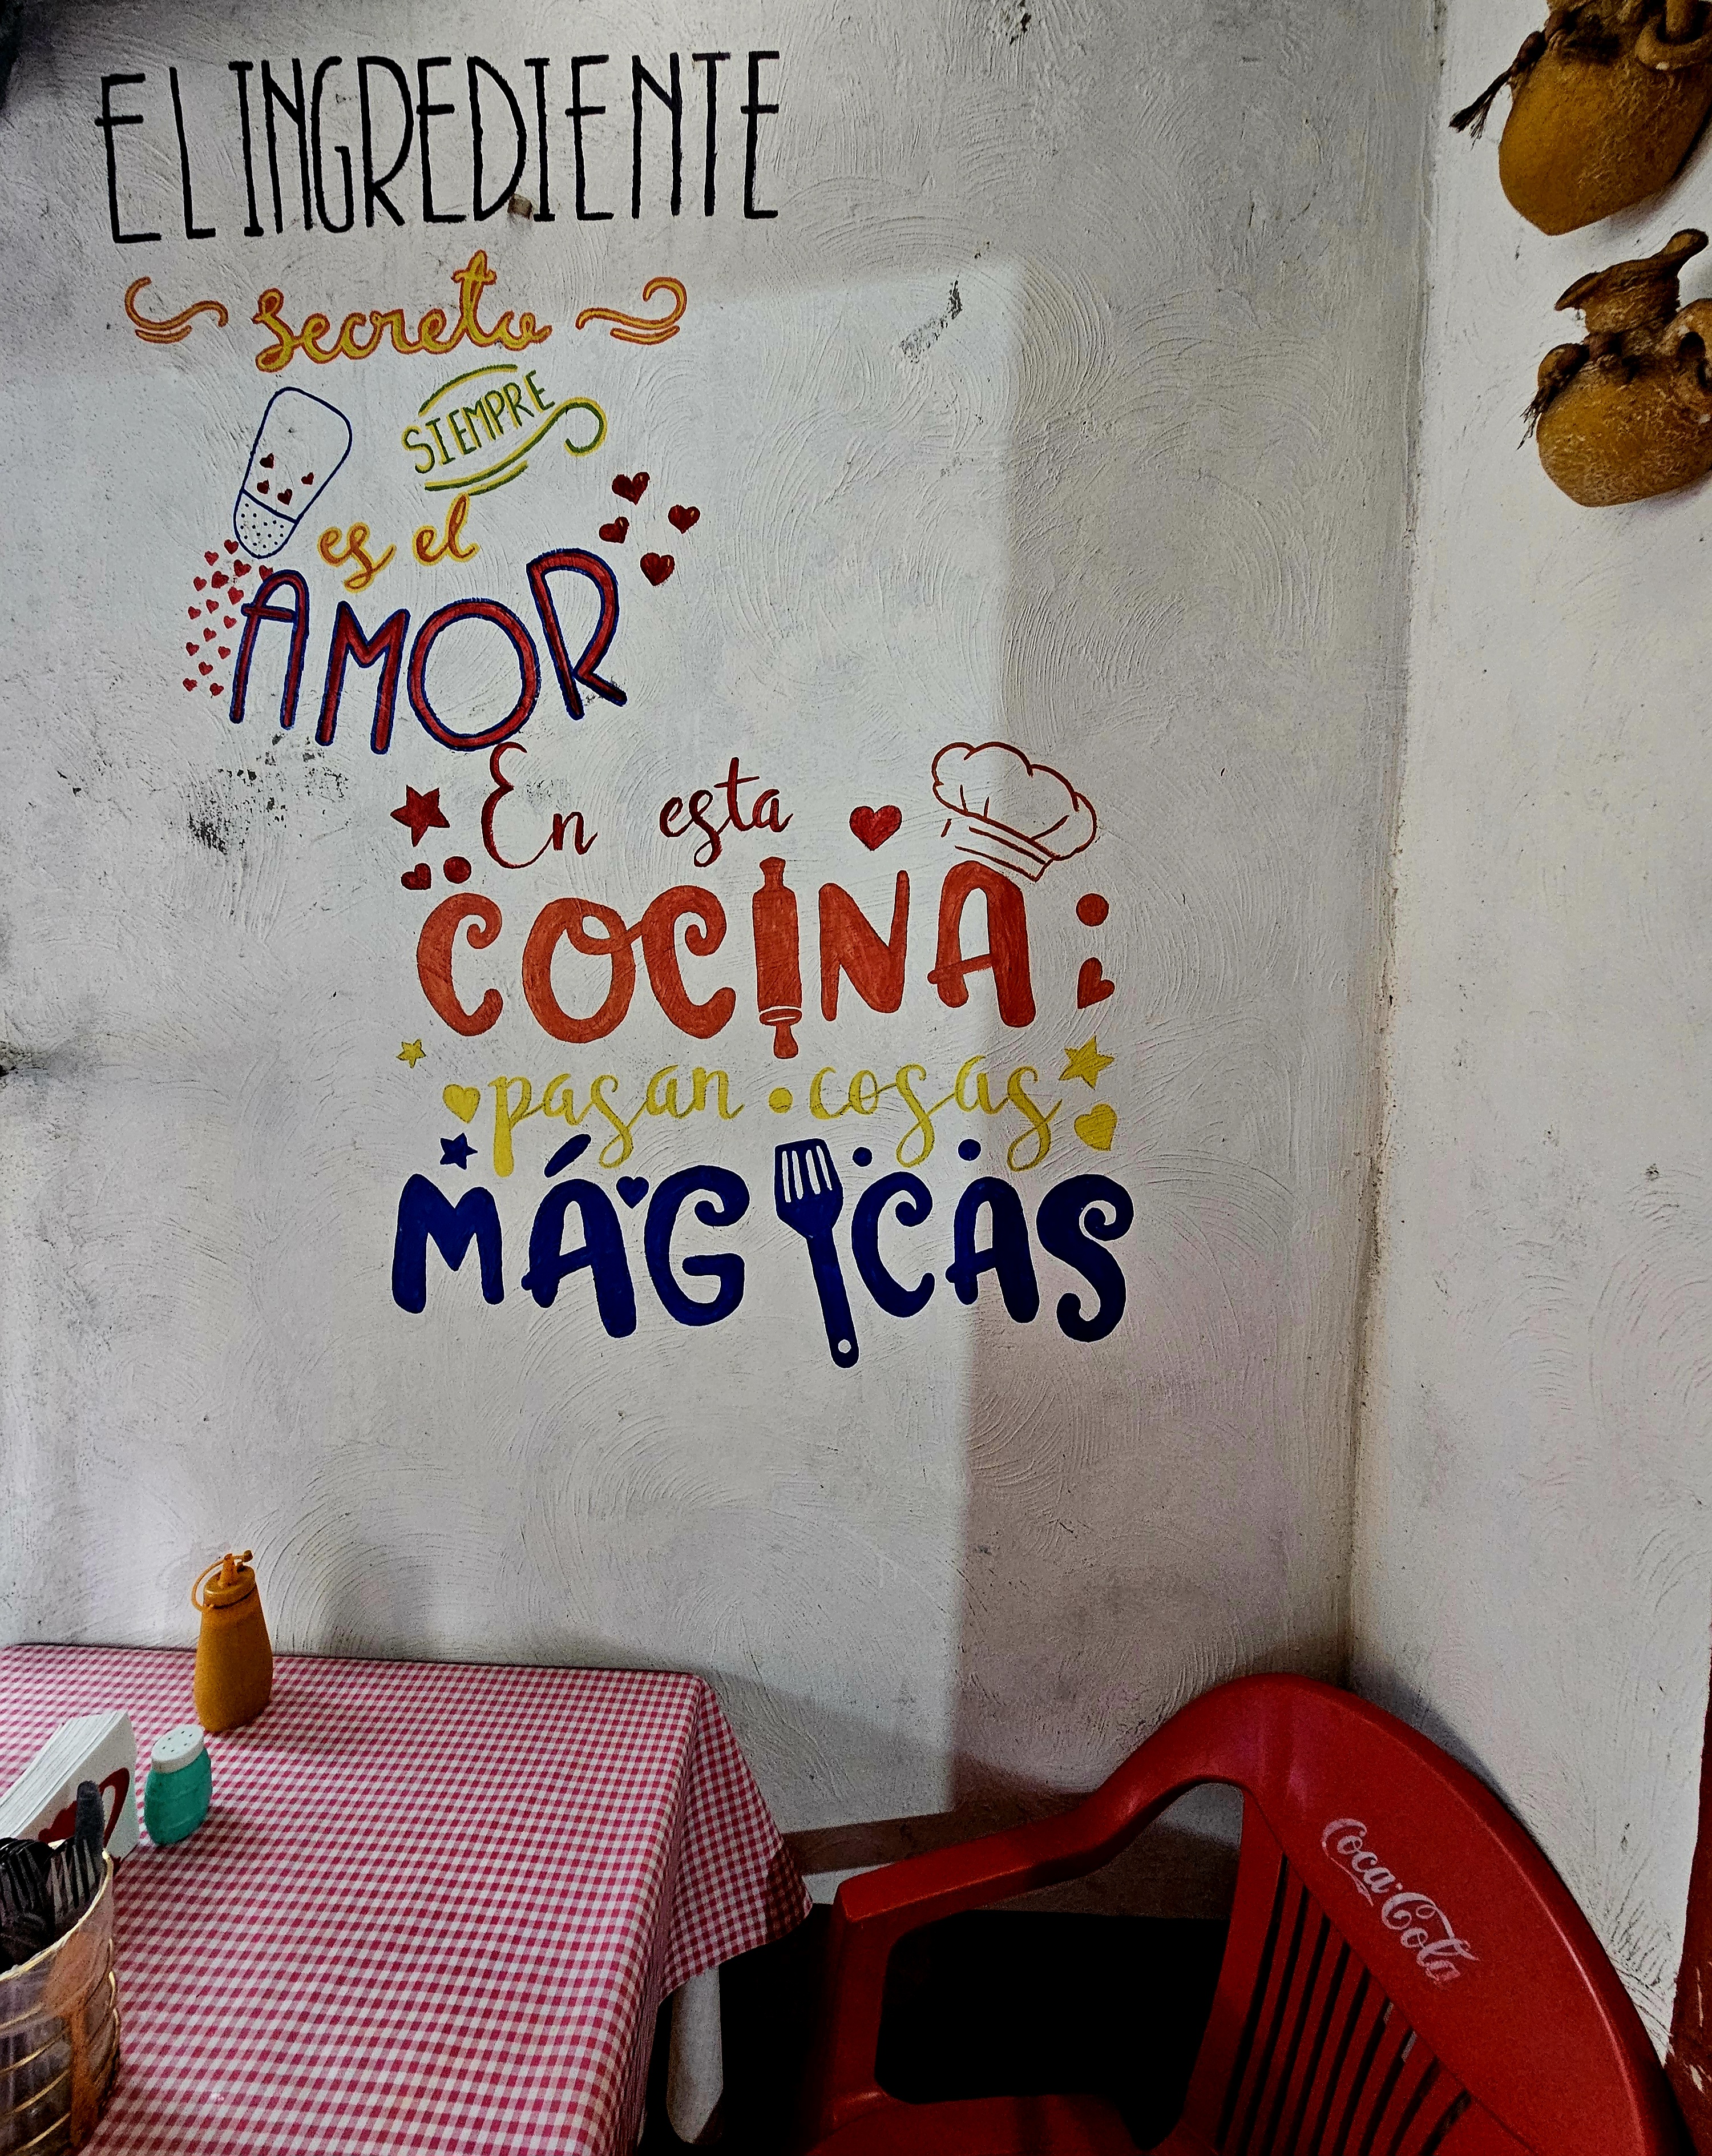 EL INGREDIENTE
secreto
SIEMPRE
es el
AMOR
En esta
COCINA
pasan cosas
MÁGICAS
Coca-Cola